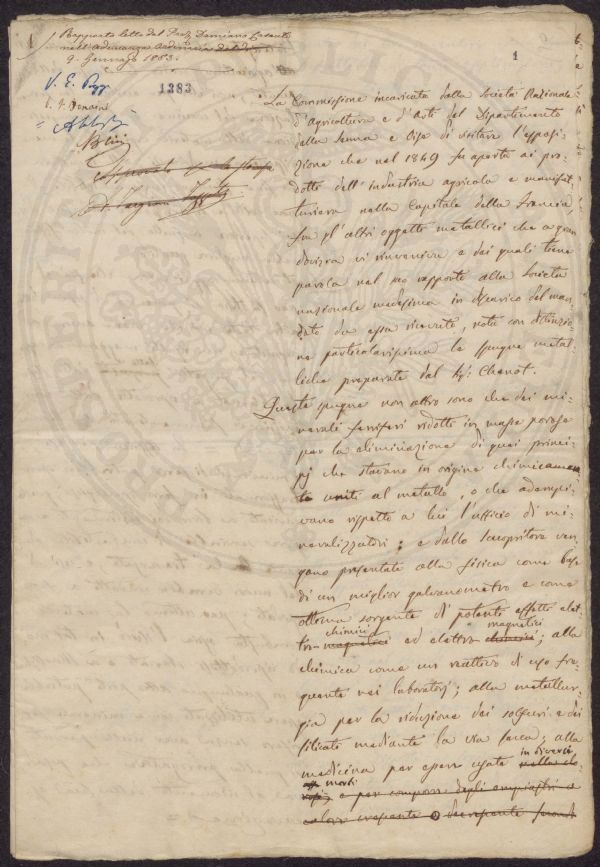 1
Rapporto letto dal Prof. Damiano Casanti
nell'Adunanza Ordinaria
9. Gennaio 1853.
1
V. E.
1383
La Commissione incaricata dalla Società Nazionale
d'Agricoltura e d'Arti del Dipartimento
della Senna e Oisa di visitare l'esposi-
zione che nel 1849 fu aperta ai pro-
dotti dell'industria agricola e manifat-
turiera nella Capitale della Francia,
fra gl'altri oggetti metallici che a gran
dovizia vi rinveniva e dei quali tenne
parola nel suo rapporto alla Società
nazionale medesima in discarico del man-
dato da essa ricevuto, nota con distinzio-
ne particolarissima le spugne metal-
liche preparate dal Sig: Chenot.
Queste spugne non altro sono che dei mi-
nerali ferriferi ridotti in masse porose
per la eliminazione di quei princi-
pj che stavano in origine chimicamen-
te uniti al metallo, o che adempi-
vano rispetto a lui l'ufficio di mi-
neralizzatori; e dallo scuopritore ven-
gono presentate alla fisica come base
di un miglior galvanometro e come
ottima sorgente di potente effetto elet-
chimici magnetici
tro-magnetici ed elettro-chimici; alla
chimica come un reattivo di uso fre-
quente nei laboratorj; alla metallur-
gia per la riduzione dei solfuri e dei
silicati mediante la via secca; alla
in diversi
medicina per essere usate nella clo-
morbi
rosi, e per comporre degli empiastri a
calore crescente o decrescente